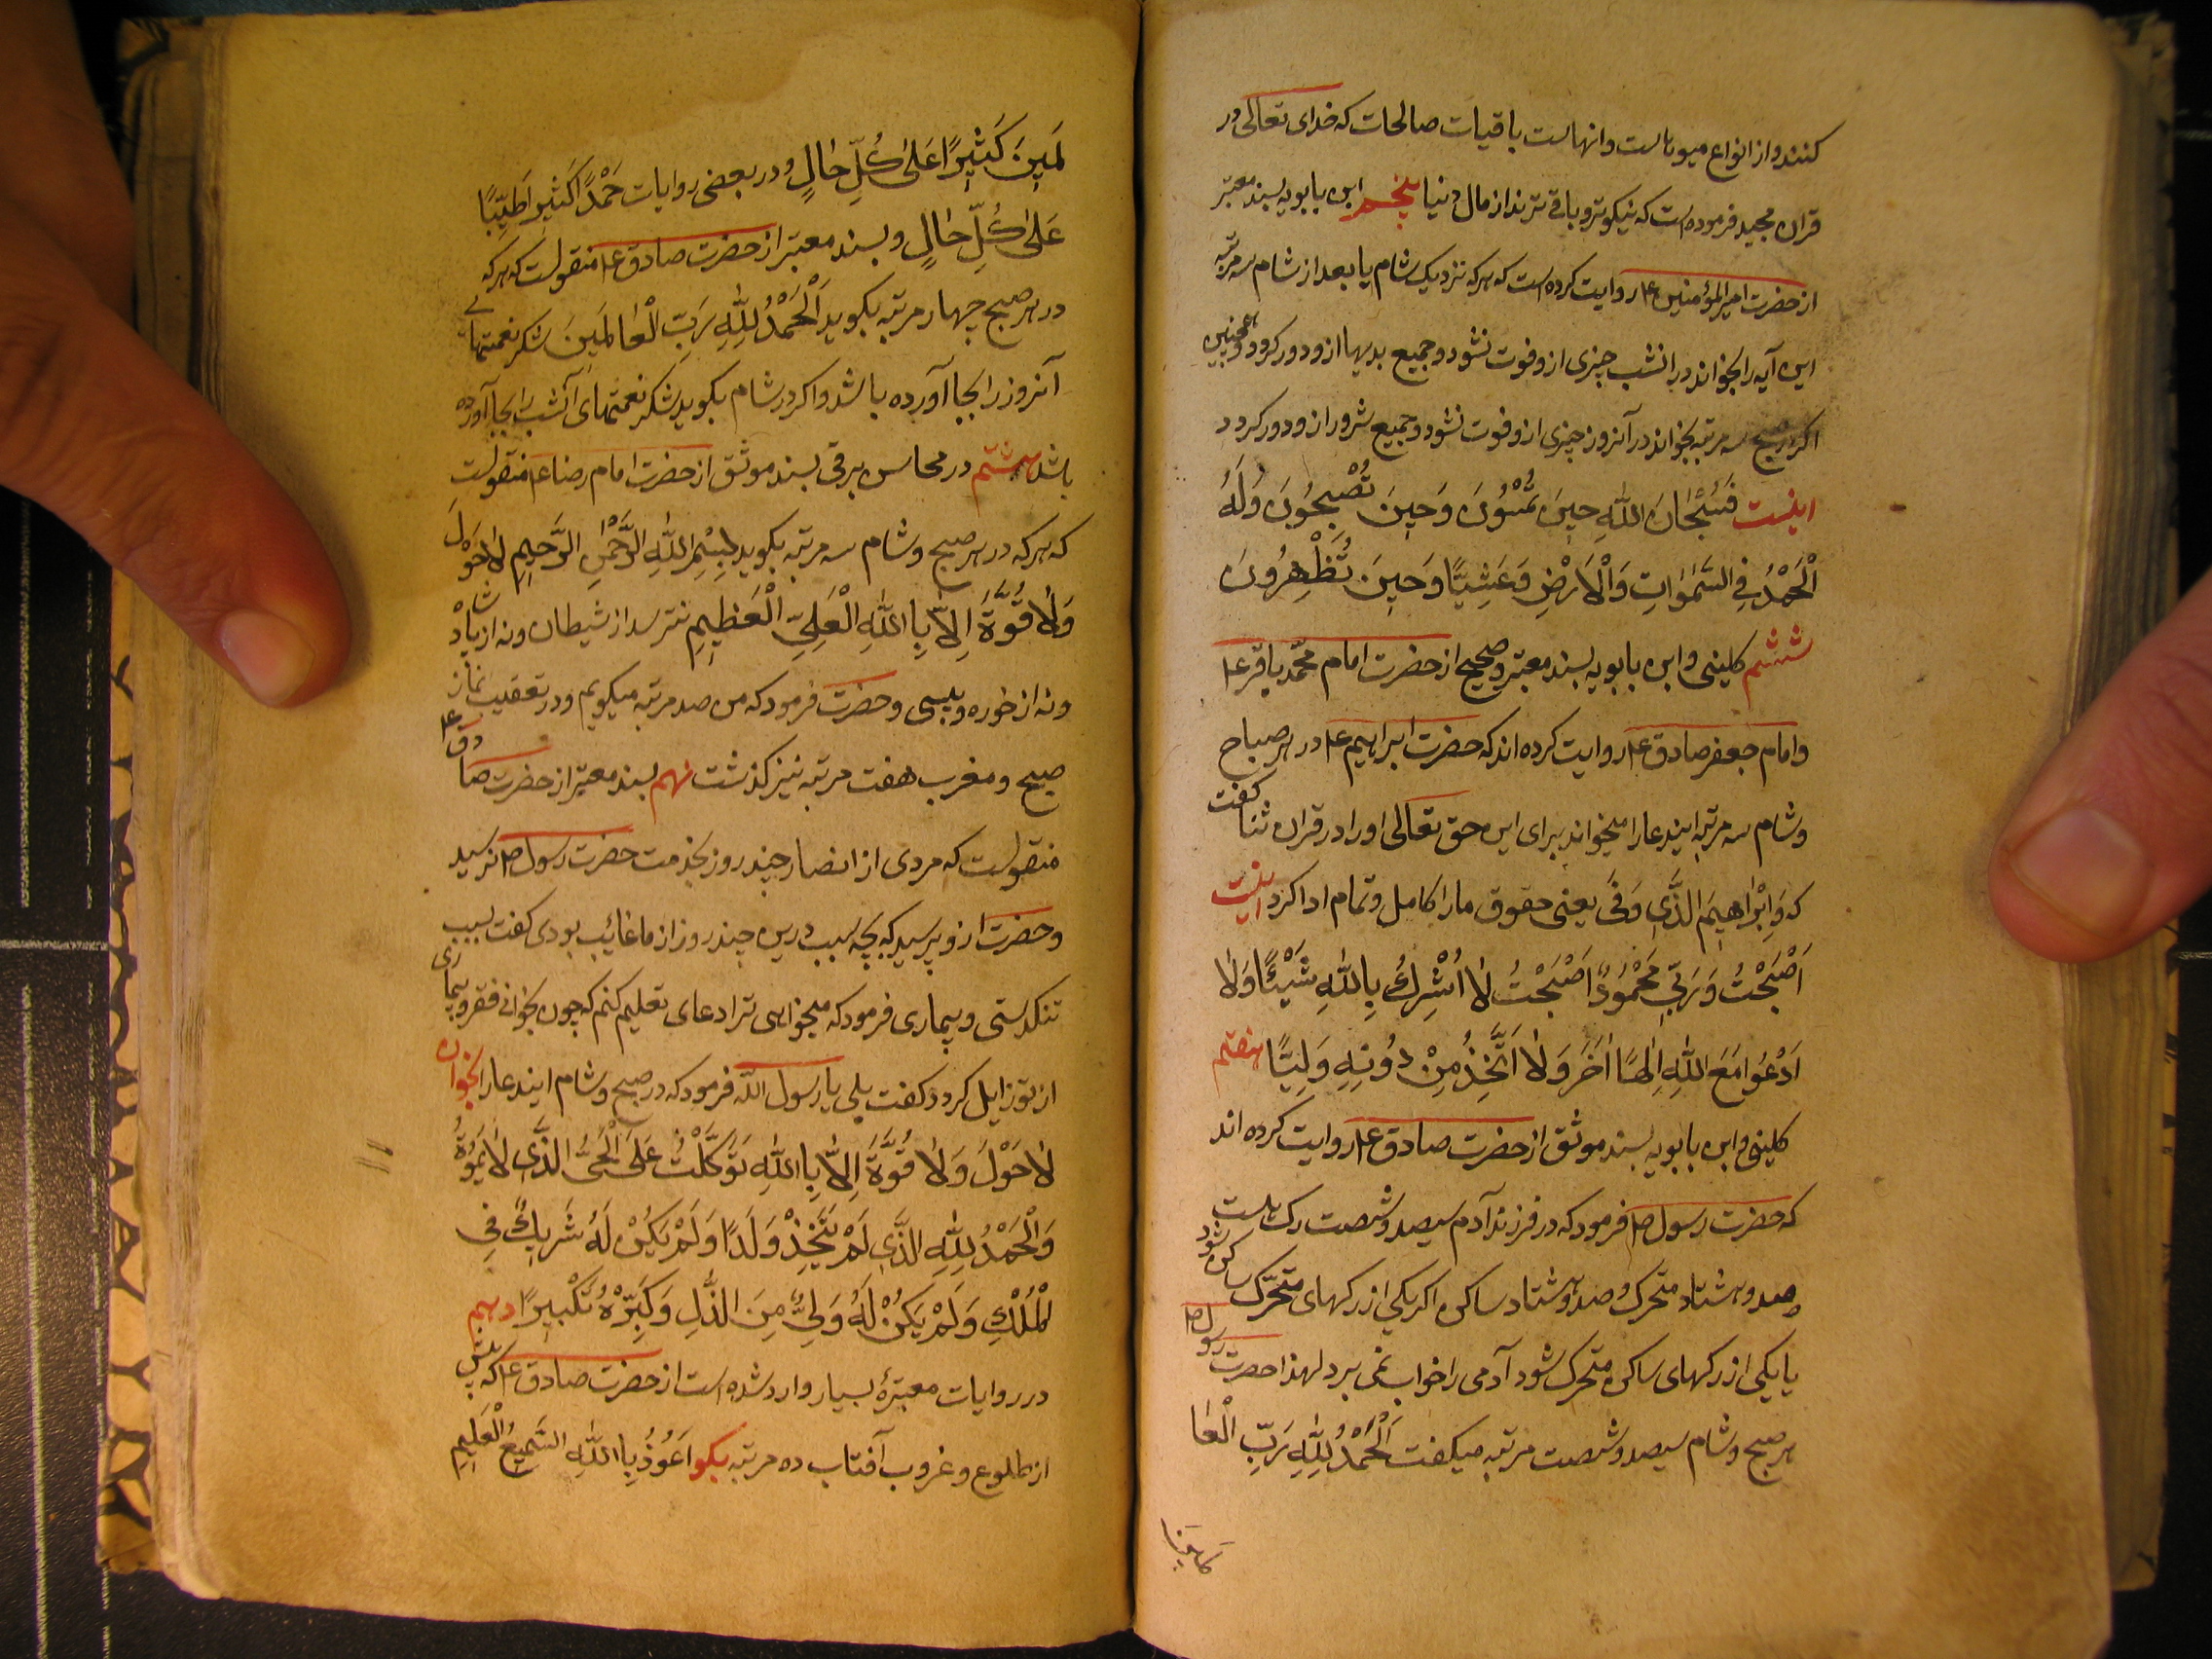 کنند و از انواع میوهاست و انهاست باقیات صالحات که خدای تعالی در
قران مجید فرموده است که نیکوتر و باقی ترند از مال دنیا پنجم ابن بابویه بسند معتبر
از حضرت امیر المؤمنین ع روایت کرده است که هر که نزدیک شام یا بعد از شام سه مرتبه
این آیه را بخواند در انشب چیزی ازو فوت نشود و جمیع بدیها ازو دور کرود و همچنین
اکر در صبح سه مرتبه بخواند در آنروز چیزی ازو فوت نشود و جمیع شرور ازو دور کرود
اینست فَسُبْحٰانَ اللّٰهِ حینَ تُمْسُونَ وَحینَ تُصْبِحُونَ وَلَهُ
الْحَمْدُ فِی السَّمٰوٰاتِ وَالْاَرْضِ وَعَشِیًّا وَحینَ تُظْهِرُونَ
ششم کلینی و ابن بابویه بسند معتبر و صحیح از حضرت امام محمّد باقر ع
و امام جعفر صادق ع روایت کرده اند که حضرت ابراهیم ع در هر صباح
و شام سه مرتبه ایندعا را میخواند برای این حق تعالی او را در قران ثنا کفت
که وَاِبْرٰاهیمَ الَّذی وَفّٰی یعنی حقوق ما را کامل و تمام ادا کرد اینست
اَصْبَحْتُ وَرَبّی مَحْمُودٌ اَصْبَحْتُ لٰا اُشْرِكُ بِاللّٰهِ شَیْئًا وَلٰا
اَدْعُوا مَعَ اللّٰهِ اِلٰهًا اٰخَرَ وَلٰا اَتَّخِذُ مِنْ دُونِهِ وَلِیًّا هفتم
کلینی و ابن بابویه بسند موثق از حضرت صادق ع روایت کرده اند
که حضرت رسول ص فرمود که در فرزند آدم سیصد و شصت رک است
صد و هشتاد متحرک و صد و هشتاد ساکن اکر یکی از رکهای متحرّک ساکن شود
یا یکی از رکهای ساکن متحرک شود آدمی را خواب نمی برد لهذا حضرت رسول ص
هر صبح و شام سیصد و شصت مرتبه میکفت اَلْحَمْدُ لِلّٰهِ رَبِّ الْعٰا
لَمینَ کَثیرًا عَلٰی کُلِّ حٰالٍ و در بعضی روایات حَمْدًا کَثیرًا طَیِّبًا
عَلٰی کُلِّ حٰالٍ و بسند معتبر از حضرت صادق ع منقولست که هر که
در هر صبح چهار مرتبه بکوید اَلْحَمْدُ لِلّٰهِ رَبِّ الْعٰالَمینَ شکر نعمتهای
آنروز را بجا آورده باشد و اکر در شام بکوید شکر نعمتهای آنشب را بجا آورده
باشد هشتم در محاسن برقی بسند موثق از حضرت امام رضا ع منقولست
که هر که در هر صبح و شام سه مرتبه بکوید بِسْمِ اللّٰهِ الرَّحْمٰنِ الرَّحیمِ لٰا حَوْلَ
وَلٰا قُوَّةَ اِلّٰا بِاللّٰهِ الْعَلِیِّ الْعَظیمِ نترسد از شیطان و نه از پادشاه
و نه از خوره و پیسی و حضرت فرمود که من صد مرتبه میکویم و در تعقیب نماز
صبح و مغرب هفت مرتبه نیز کذشت نهم بسند معتبر از حضرت صادق ع
منقولست که مردی از انصار چند روز بخدمت حضرت رسول ص نرسید
و حضرت ازو پرسید که بچه سبب درین چند روز از ما غائب بودی کفت بسبب
تنکدستی و بیماری فرمود که میخواهی ترا دعای تعلیم کنم که چون بخوانی فقر و بیماری
از تو زایل کرود کفت بلی یا رسول اللّه فرمود که در صبح و شام ایندعا را بخوان
لٰا حَوْلَ وَلٰا قُوَّةَ اِلّٰا بِاللّٰهِ تَوَکَّلْتُ عَلَی الْحَیِّ الَّذی لٰا یَمُوتُ
وَالْحَمْدُ لِلّٰهِ الَّذی لَمْ یَتَّخِذْ وَلَدًا وَلَمْ یَکُنْ لَهُ شَریكٌ فِی
الْمُلْكِ وَلَمْ یَکُنْ لَهُ وَلِیٌّ مِنَ الذُّلِّ وَکَبِّرْهُ تَکْبیرًا دهم
در روایات معتبرهٔ بسیار وارد شده است از حضرت صادق ع که پیش
از طلوع و غروب آفتاب ده مرتبه بکو اَعُوذُ بِاللّٰهِ السَّمیعُ الْعَلیمِ